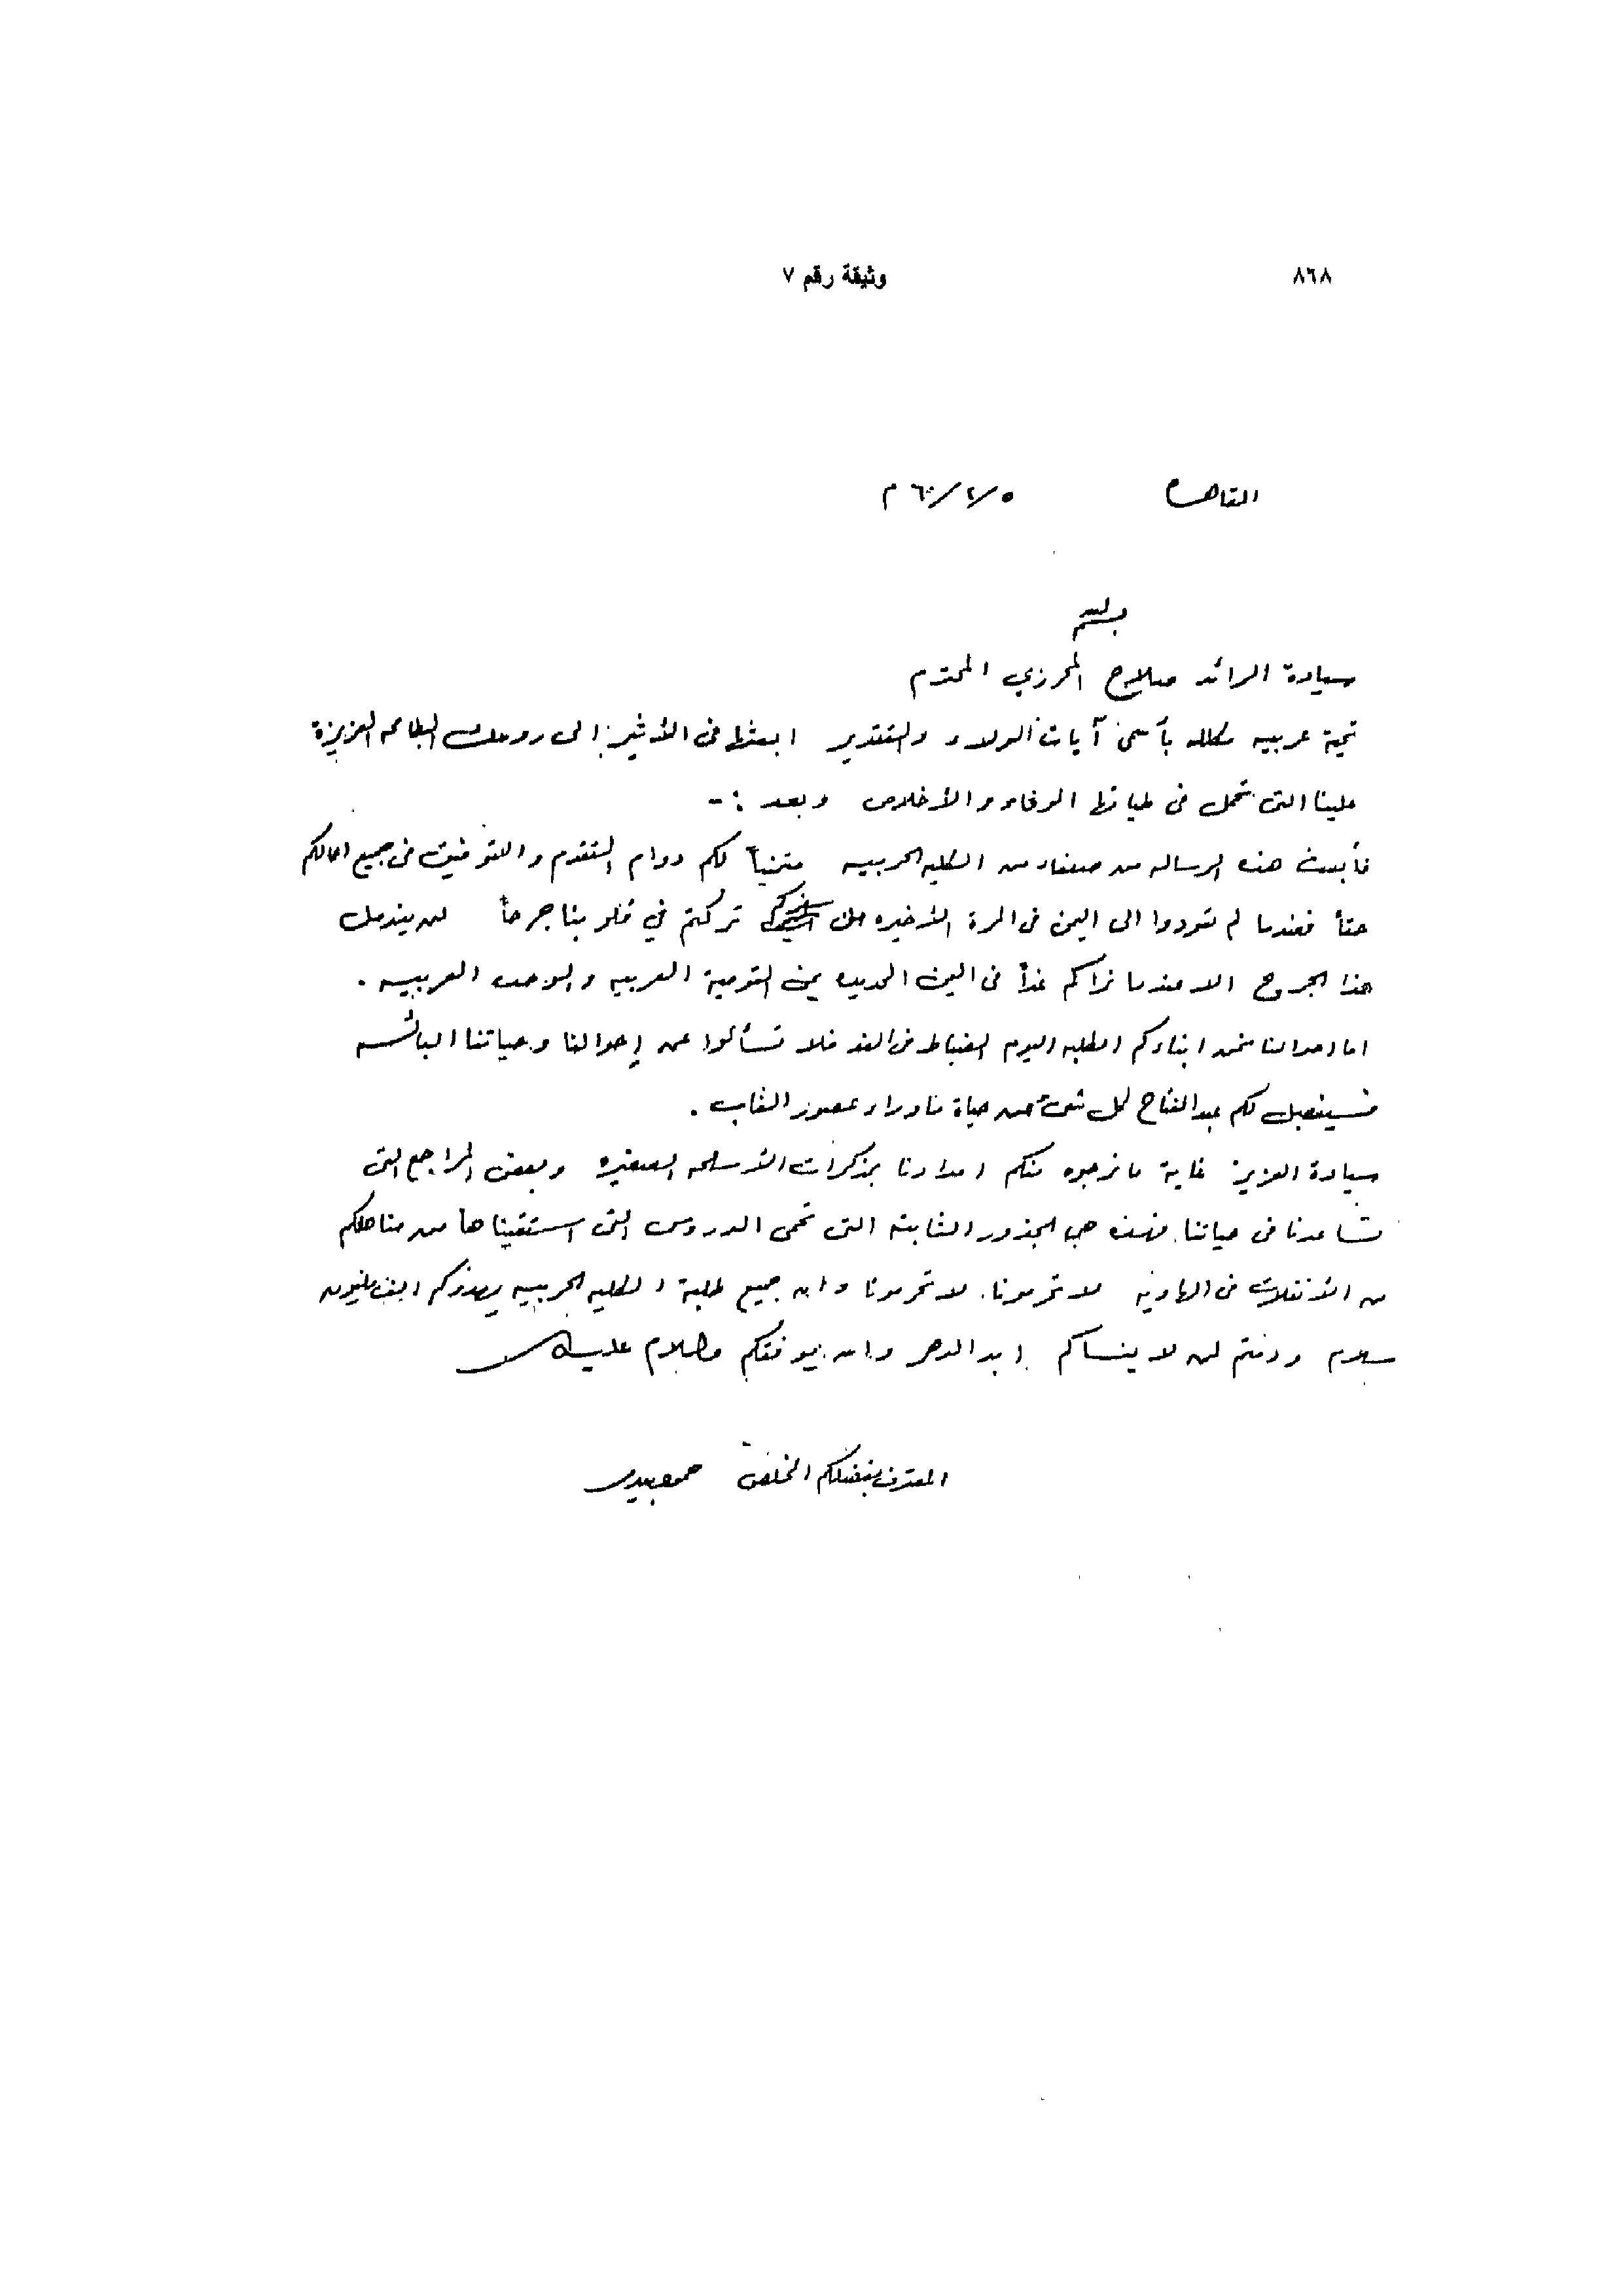 ٨٦٨ وثيقة رقم ٧
القاهرة ٥/٢/٦٠ م
سيادة الرائد صلاح المحرزي المحترم
تحية عربيه مكلله بأسمى آيات الولاء والتقدير ابعثها في الأثير إلى روحك الطاهره العزيزة
علينا التي تحمل في طياتها الوفاء والأخلاص وبعد :-
فأبعث هذه الرساله من صنعاء من الكليه الحربيه متمنياً لكم دوام التقدم والتوفيق في جميع اعمالكم
حقاً فعندما لم تعودوا الى اليمن في المرة الأخيره تركتم في قلوبنا جرحاً لن يندمل
هذا الجرح الا عندما نراكم غداً في اليمن الجديده يمن القومية العربيه والوحده العربيه .
اما احوالنا نحن ابناءكم الطلبه اليوم الضباط في الغد فلا تسألوا عن إحوالنا وحياتنا البائسه
فسيفصل لكم عبدالفتاح كل شيء عن حياة ما وراء عصور الغاب .
سيادة العزيز غاية ما نرجوه منكم امدادنا بمذكرات الأسلحه الصغيره وبعض المراجع التي
تساعدنا في حياتنا فهذه هي الجذور الثابته التي تحمى الدروس التي استقيناها من مناهلكم
من الأنفلات في الهاويه لا تحرمونا لا تحرمونا وان جميع طلبة الكليه الحربيه يهدوكم الف مليون
سلام ودمتم لمن لا ينساكم ابد الدهر والله يوفقكم والسلام عليكم
المعترف بفضلكم المخلص حمود بيدر